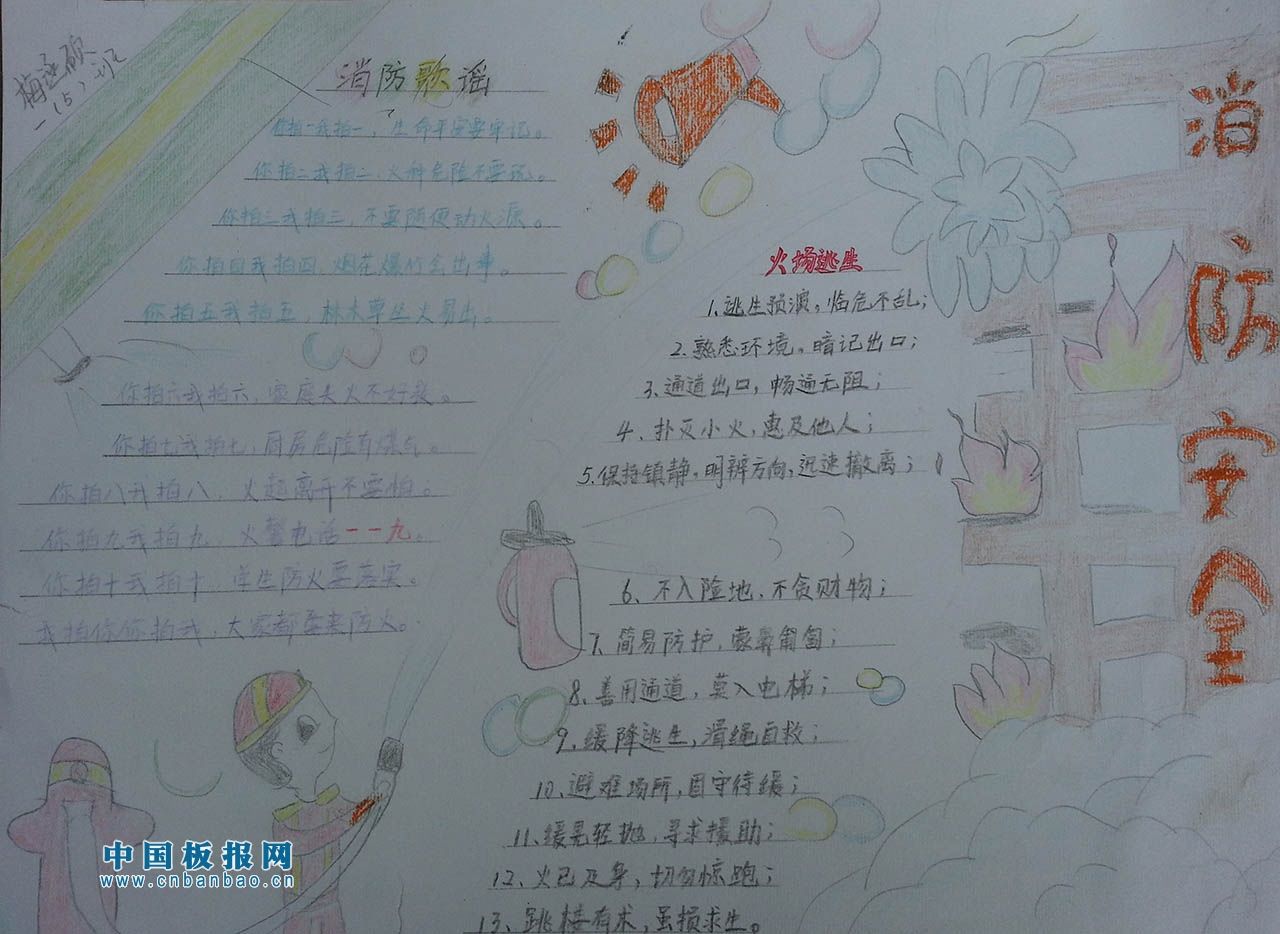 梅
一（5）班
消防歌谣
你拍一我拍一，生命平安要牢记。
你拍二我拍二，火种危险不要玩。
你拍三我拍三，不要随便动火源。
你拍四我拍四，烟花爆竹会出事。
你拍五我拍五，林木草丛火易出。
你拍六我拍六，家庭失火不好救。
你拍七我拍七，厨房危险有煤气。
你拍八我拍八，火起离开不要怕。
你拍九我拍九，火警电话一一九。
你拍十我拍十，学生防火要落实。
我拍你你拍我，大家都要来防火。
火场逃生
1.逃生预演，临危不乱；
2.熟悉环境，暗记出口；
3.通道出口，畅通无阻；
4、扑灭小火，惠及他人；
5.保持镇静，明辨方向，迅速撤离；
6、不入险地，不贪财物；
7、简易防护，蒙鼻匍匐；
8、善用通道，莫入电梯；
9、缓降逃生，滑绳自救；
10、避难场所，固守待缓；
11、缓晃轻抛，寻求援助；
12、火已及身，切勿惊跑；
13、跳楼有术，虽损求生。
消防安全
中国板报网
www.cnbanbao.cn